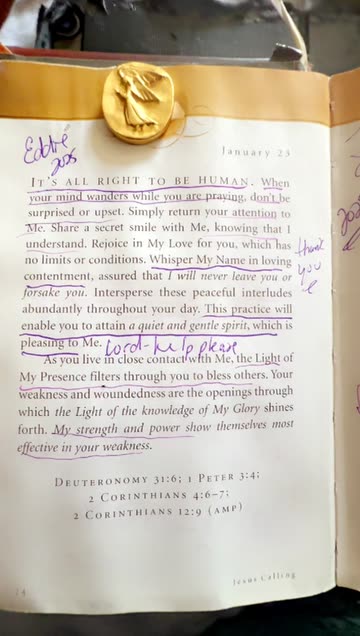 Eddie
2025
January 23
IT'S ALL RIGHT TO BE HUMAN. When
your mind wanders while you are praying, don't be
surprised or upset. Simply return your attention to
Me. Share a secret smile with Me, knowing that I
understand. Rejoice in My Love for you, which has
no limits or conditions. Whisper My Name in loving
contentment, assured that I will never leave you or
forsake you. Intersperse these peaceful interludes
abundantly throughout your day. This practice will
enable you to attain a quiet and gentle spirit, which is
pleasing to Me.
thank
you
Lord-help please
As you live in close contact with Me, the Light of
My Presence filters through you to bless others. Your
weakness and woundedness are the openings through
which the Light of the knowledge of My Glory shines
forth. My strength and power show themselves most
effective in your weakness.
DEUTERONOMY 31:6; 1 PETER 3:4;
2 CORINTHIANS 4:6–7;
2 CORINTHIANS 12:9 (AMP)
Jesus Calling